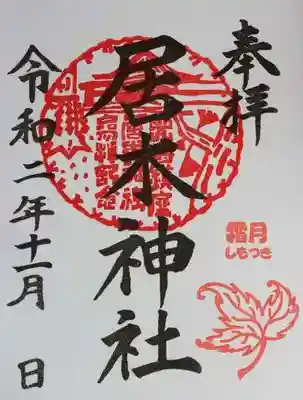 奉拝
霜月
しもつき
居木神社
令和二年十一月 日